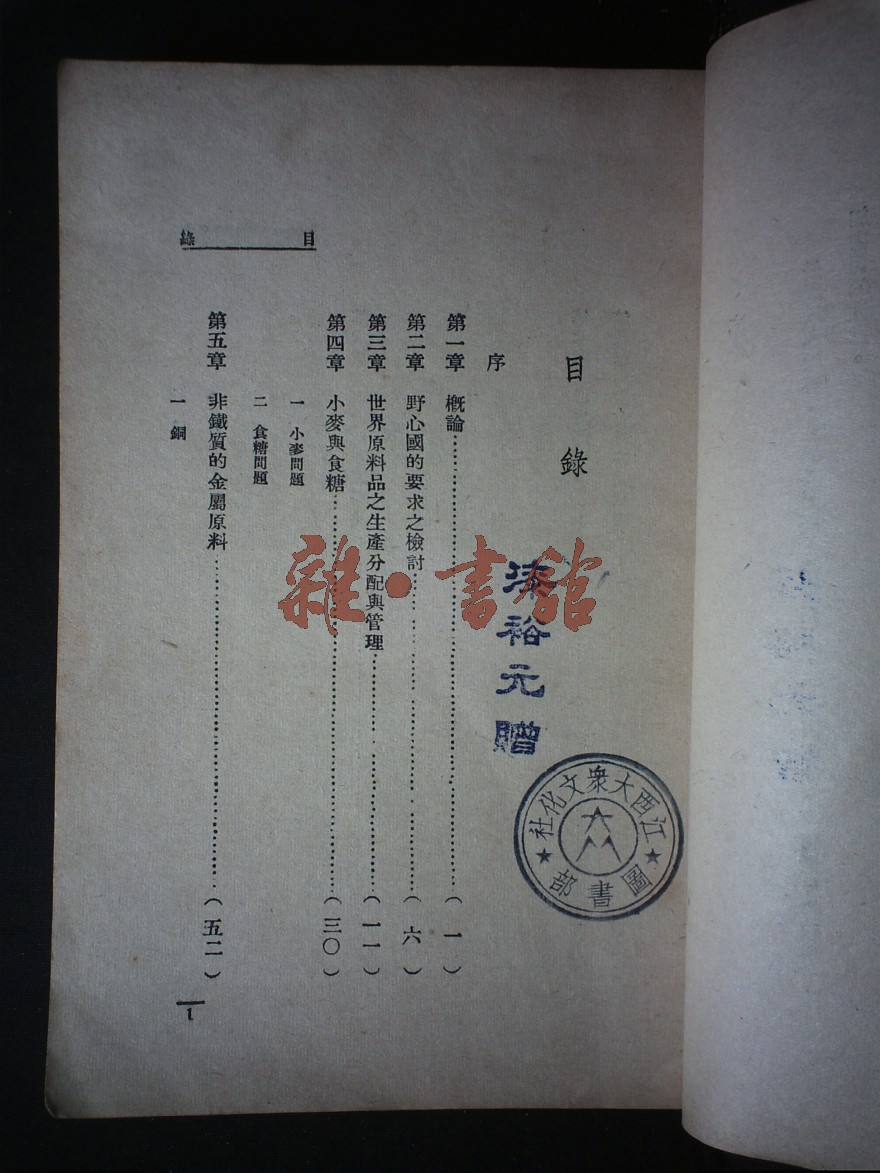 目錄
目錄
序
第一章 概論……(一)
第二章 野心國的要求之檢討……(六)
第三章 世界原料品之生產分配與管理……(一一)
第四章 小麥與食糖……(三〇)
一 小麥問題
二 食糖問題
第五章 非鐵質的金屬原料……(五二)
一 銅
1
裕元贈
江西大衆文化社
圖書部
雜·書館